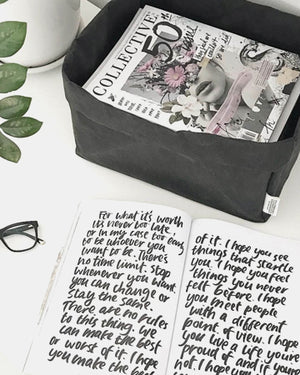 COLLECTIVE
50th
issue
For what it's worth
it's never too late,
or in my case too early
to be whoever you
want to be. There's
no time limit. Stop
whenever you want.
you can change or
stay the same.
There are no rules
to this thing. we
can make the best
or worst of it. I hope
you make the best
of it. I hope you see
things that startle
you. I hope you feel
things you never
felt before. I hope
you meet people
with a different
point of view. I hope
you live a life you're
proud of and if you're
not, I hope you